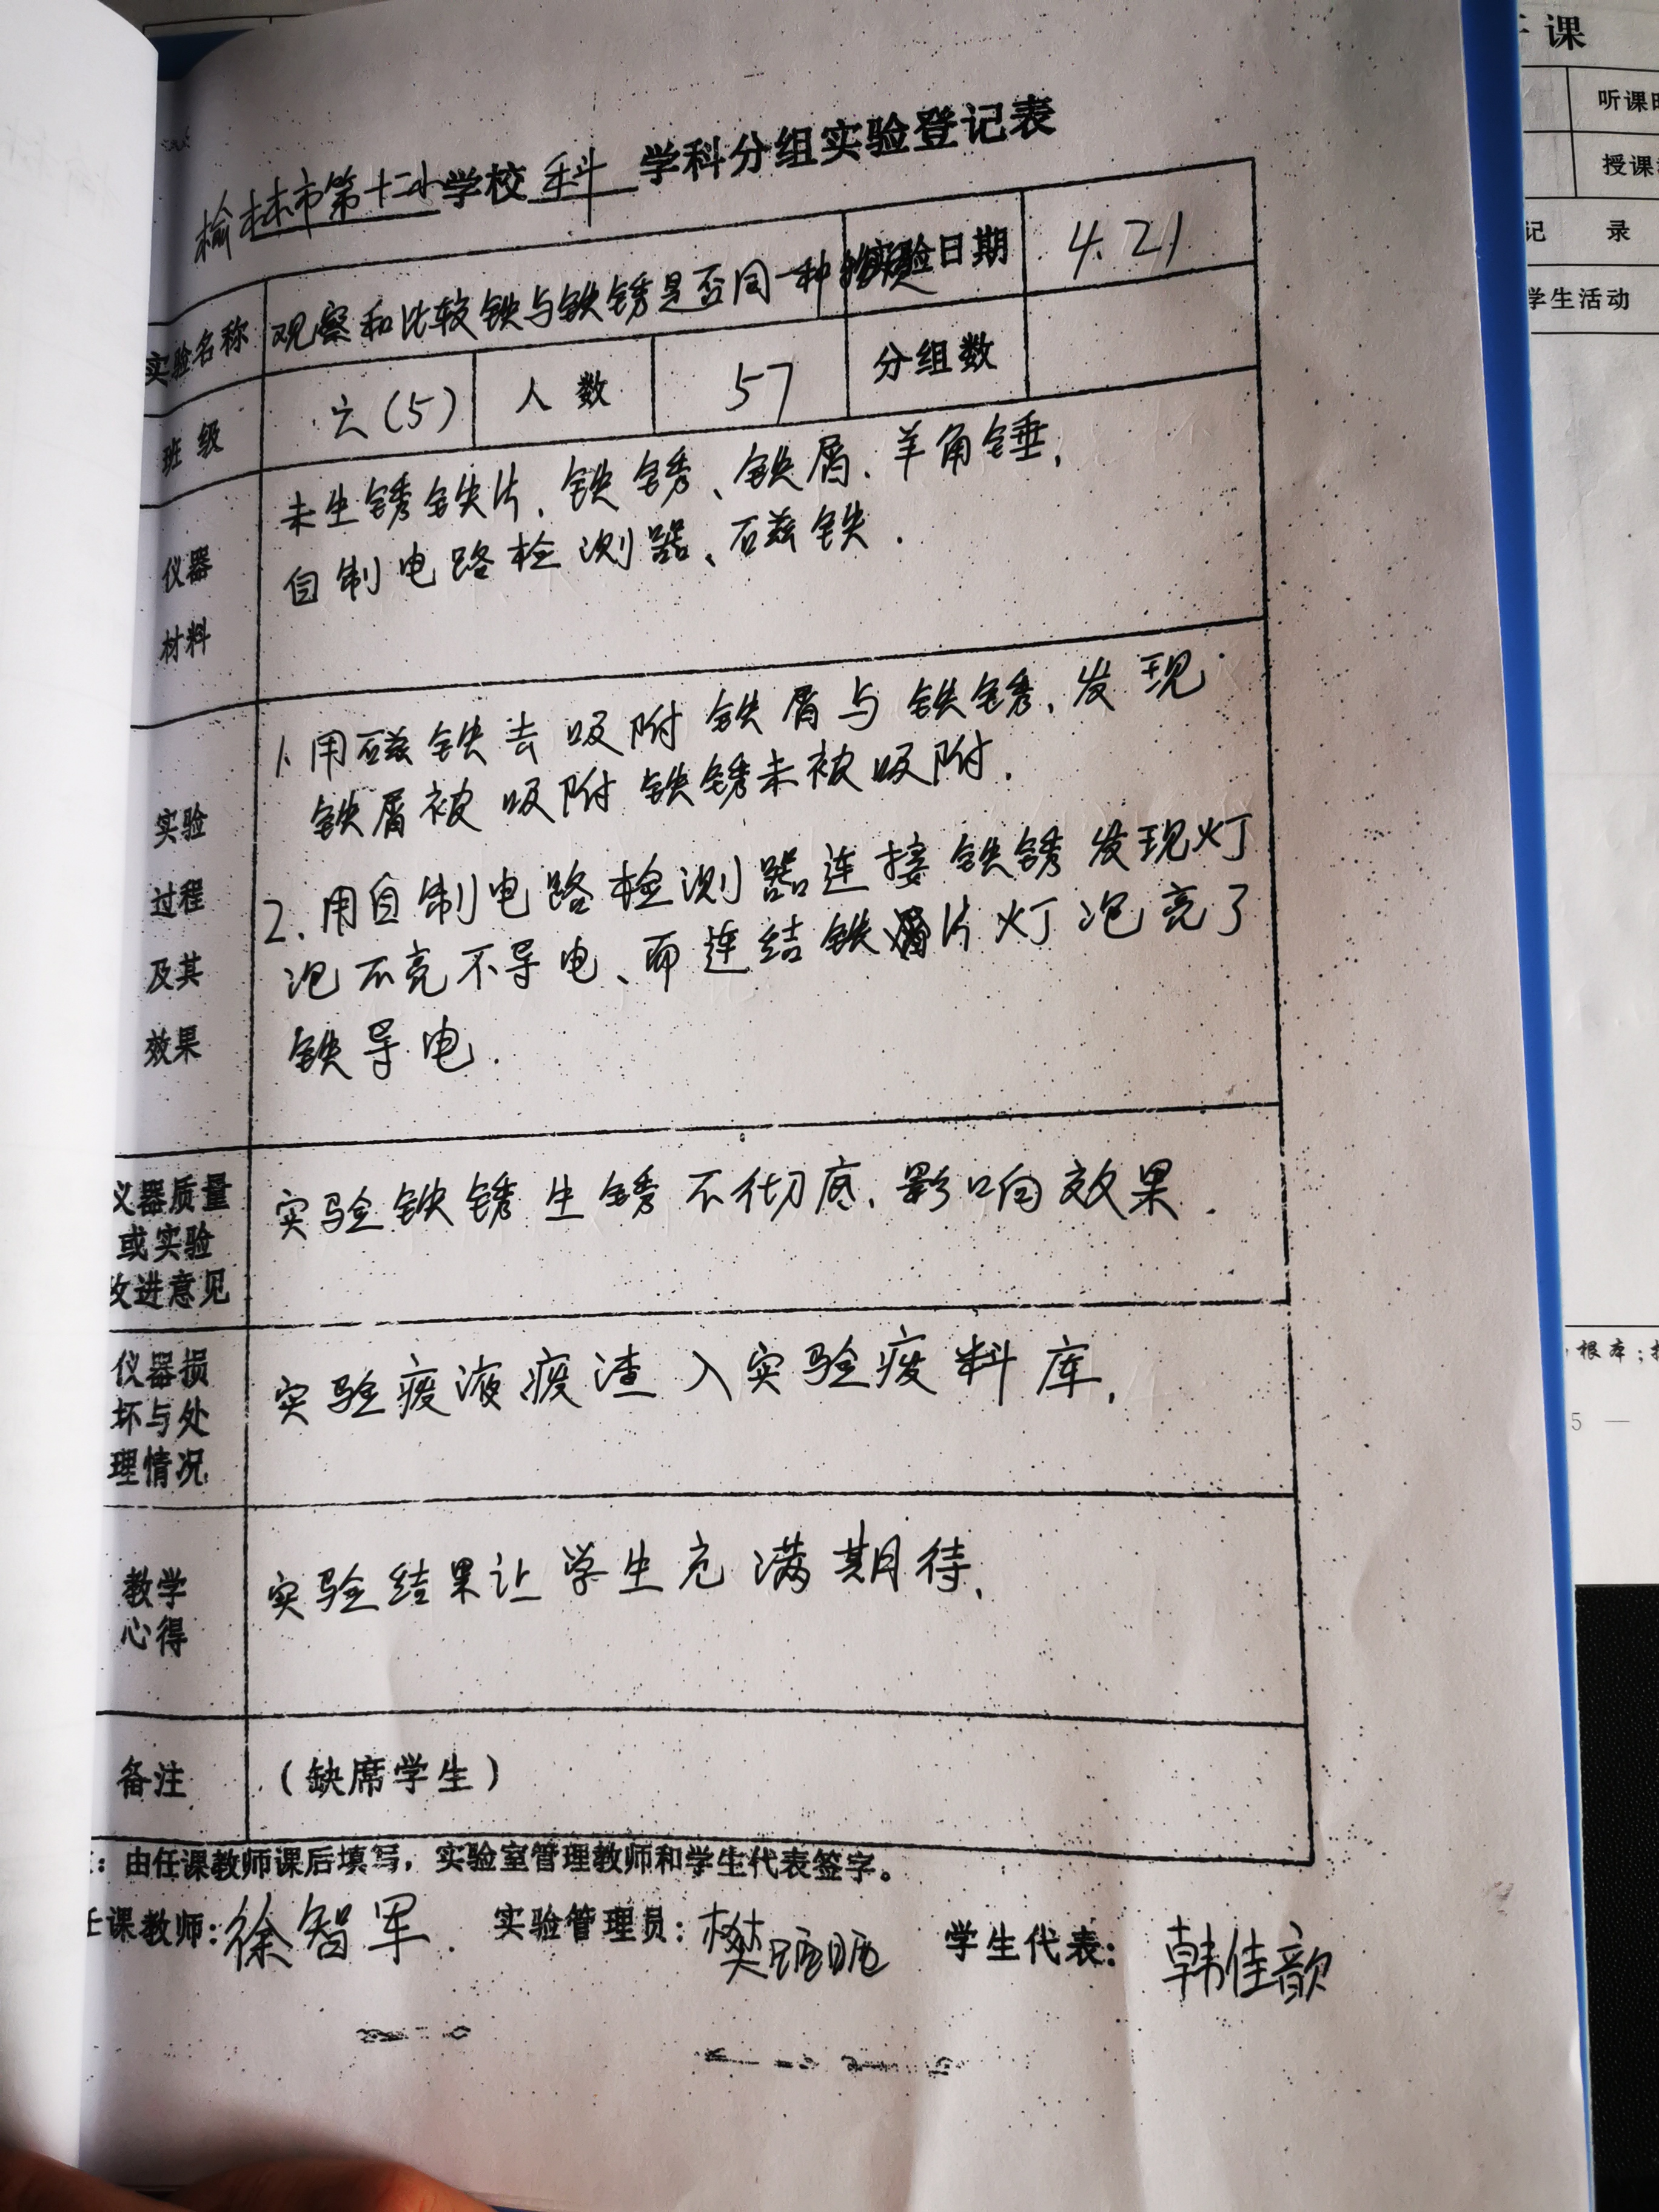 榆林市第十二小学校 科 学科分组实验登记表
实验名称 观察和比较铁与铁锈是否同一种物质 实验日期 4.21
班级 六(5) 人数 57 分组数
仪器
材料
未生锈铁片、铁锈、铁屑、羊角锤、
自制电路检测器、磁铁.
实验
过程
及其
效果
1、用磁铁去吸附铁屑与铁锈、发现
铁屑被吸附铁锈未被吸附.
2、用自制电路检测器连接铁锈发现灯
泡不亮不导电、而连结铁片灯泡亮了
铁导电.
仪器质量
或实验
改进意见
实验铁锈生锈不彻底、影响效果.
仪器损
坏与处
理情况
实验废液废渣入实验废料库、
教学
心得
实验结果让学生充满期待、
备注 (缺席学生)
:由任课教师课后填写,实验室管理教师和学生代表签字。
任课教师:徐智军. 实验管理员:樊 学生代表:韩佳歆
课
听课
授课
记 录
学生活动
根本;
5 —